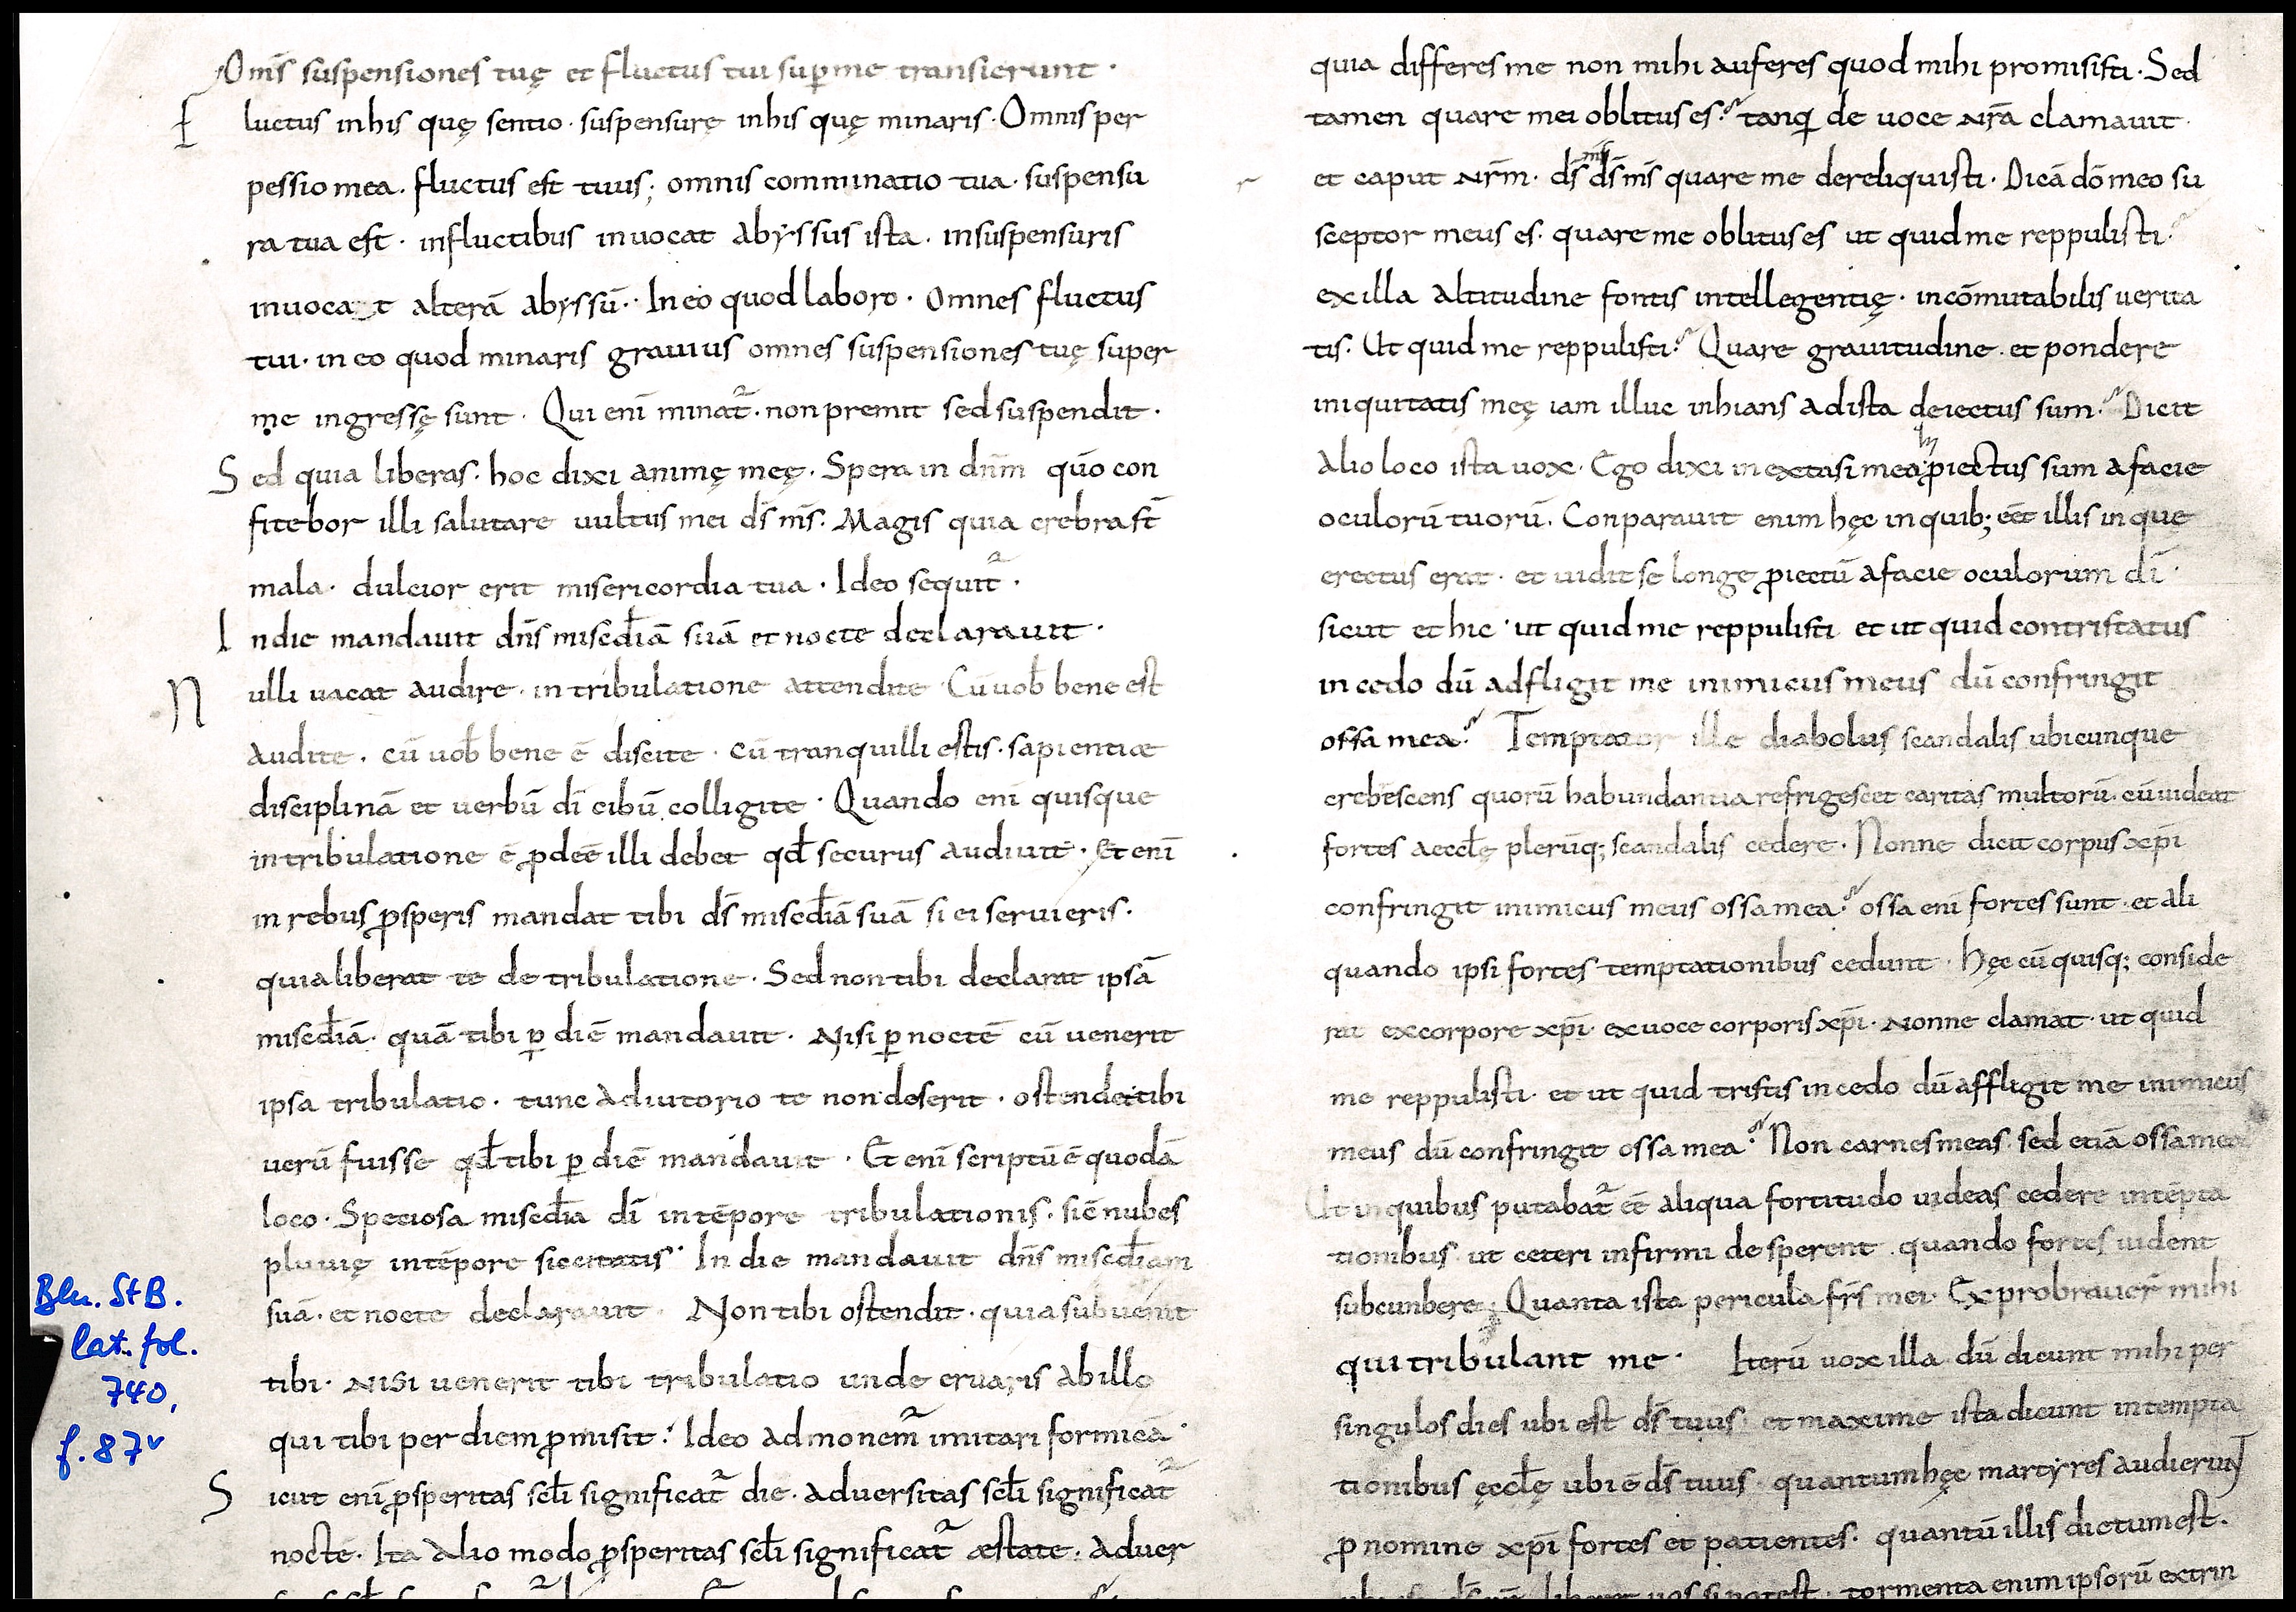 Om̅s suspensiones tuę et fluctus tui sup̲ me transierunt ·
Fluctus in his quę sentio · suspensurę in his quę minaris · Omnis per
pessio mea . fluctus est tuus ; omnis comminatio tua · suspensu
ra tua est · in fluctibus inuocat abyssus ista . in suspensuris
inuocat alterā abyssū · In eo quod laboro · omnes fluctus
tui · in eo quod minaris grauius omnes suspensiones tuę super
me ingressę sunt · Qui eni̅ minat᷑ · non premit sed suspendit ·
Sed quia liberas · hoc dixi animę meę · Spera in dn̅m quō con
fitebor illi salutare uultus mei d̅s m̅s · Magis quia crebra st̅
mala · dulcior erit misericordia tua · Ideo sequit᷑ ·
In die mandauit dn̅s misc̅diā suā et nocte declarauit ·
Nulli uacat audire · in tribulatione attendite Cū uob̅ bene est
audite . cū uob̅ bene ē discite · cū tranquilli estis · sapientiæ
disciplinā et uerbū di̅ cibū colligite · Quando eni̅ quisque
in tribulatione ē ꝓdeē illi debet qd̅ securus audiuit · Et eni̅
in rebus ꝓsperis mandat tibi d̅s misc̅diā suā si ei seruieris .
quia liberat te de tribulatione · Sed non tibi declarat ipsā
misc̅diā · quā tibi ꝑ diē mandauit · Nisi ꝑ noctē cū uenerit
ipsa tribulatio · tunc adiutorio te non deserit · ostendet tibi
uerū fuisse qd̅ tibi ꝑ diē mandauit · Et eni̅ scriptū ē quodā
loco · Speciosa misc̅dia di̅ in tēpore tribulationis · sic̅ nubes
pluuię in tēpore siccitatis · In die mandauit dn̅s misc̅diam
suā · et nocte declarauit · Non tibi ostendit · quia subuenit
tibi · Nisi uenerit tibi tribulatio unde eruaris ab illo
qui tibi per diem ꝓmisit · Ideo admonem᷑ imitari formicā ·
Sicut eni̅ ꝓsperitas scl̅i significat᷑ die · aduersitas scl̅i significat᷑
nocte · Ita alio modo ꝓsperitas scl̅i significat᷑ æstate · aduer
Bln. StB.
lat. fol.
740,
f. 87v
quia differes me non mihi auferes quod mihi promisisti · Sed
tamen quare mei oblitus es ? tanq̅ de uoce nr̅a clamauit ·
et caput nr̅m · d̅s d̅s m̅s quare me dereliquisti · Dicā dō meo su
sceptor meus es · quare me oblitus es ut quid me reppulisti ?
ex illa altitudine fontis intellegentię · incōmutabilis uerita
tis · Ut quid me reppulisti ? Quare grauitudine · et pondere
iniquitatis meę iam illuc inhians ad ista deiectus sum ? Dicit
alio loco ista uox · Ego dixi in extasi mea ꝓiectus sum a facie
oculorū tuorū . Conparauit enim hęc in quib; eēt illis in quę
erectus erat · et uidit se longe ꝓiectū a facie oculorum di̅ ·
sicut et hic · ut quid me reppulisti et ut quid contristatus
incedo dū adfligit me inimicus meus dū confringit
ossa mea ? Temptator ille diabolus scandalis ubicunque
crebescens quorū habundantia refrigescet caritas multorū · cū uideat
fortes aeccl̅ę plerūq; scandalis cedere · Nonne dicit corpus xp̅i
confringit inimicus meus ossa mea ? ossa eni̅ fortes sunt · et ali
quando ipsi fortes temptationibus cedunt · Hęc cū quisq; conside
rat ex corpore xp̅i · ex uoce corporis xp̅i · Nonne clamat · ut quid
me reppulisti · et ut quid tristis incedo dū affligit me inimicus
meus dū confringit ossa mea ? Non carnes meas · sed etiā ossa mea
Ut in quibus putabat᷑ eē aliqua fortitudo uideas cedere in tēpta
tionibus · ut ceteri infirmi desperent · quando fortes uident
subcunbere · Quanta ista pericula fr̅s mei · Exprobrauer̅ mihi
qui tribulant me · Iterū uox illa dū dicunt mihi per
singulos dies ubi est d̅s tuus · et maxime ista dicunt in tempta
tionibus ęccl̅ę ubi ē d̅s tuus · quantum hęc martyres audierunt
ꝓ nomine xp̅i fortes et patientes · quantū illis dictum est .
tormenta enim ipsorū extrin